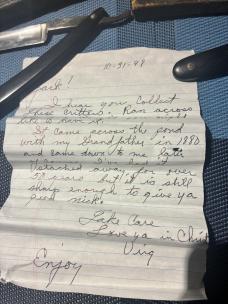 10-31-98
Jack!
I hear you collect
these critters. Ran across
It came across the pond
with my Grandfather in 1880
and came down to me later
stached away for over
50 years but it is still
sharp enough to give ya
good nick.
Take Care
Love ya in Christ
Virg
Enjoy